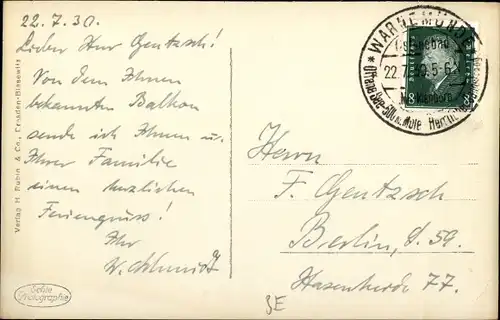 22.7.30.
Lieber Herr Gentzsch!
Von dem Ihnen
bekannten Balkon
sende ich Ihnen u.
Ihrer Familie
einen herzlichen
Feriengruss!
Ihr
W. Schmidt
Verlag H. Rubin & Co., Dresden-Blasewitz
Echte Photographie
WARNEMÜNDE
Ostseebad
22.7.30.5-6
Offene See-500 m Mole
8
Herrn
F. Gentzsch
Berlin, S. 59.
Hasenheide 77.